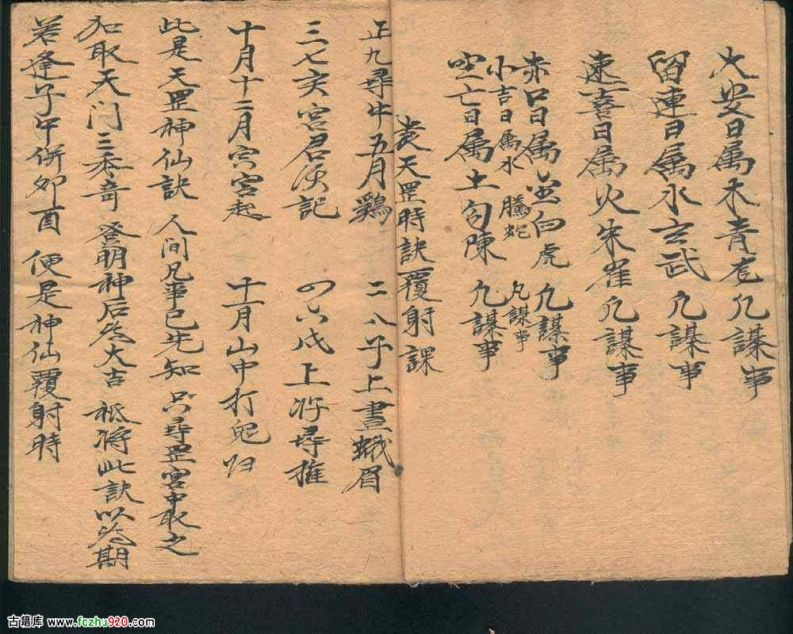 大安日属木青龙凡謀事
留連日属水玄武凡謀事
速喜日属火朱雀凡謀事
赤口日属金白虎凡謀事
小吉日属水騰蛇凡謀事
空亡日属土勾陳凡謀事
天罡時訣覆射課
正九尋牛五月鷄 二八子上畫蛾眉
三七亥宮君須記 四六戌上好尋推
十月十二月寅宮起 十一月山中打兔归
此是天罡神仙訣 人间凡事已先知 只尋罡宮中取之
加取天门三奇 登明神后为大吉 祗将此訣以为期
若逢子午併卯酉 便是神仙覆射時
古籍库 www.fczhu920.com